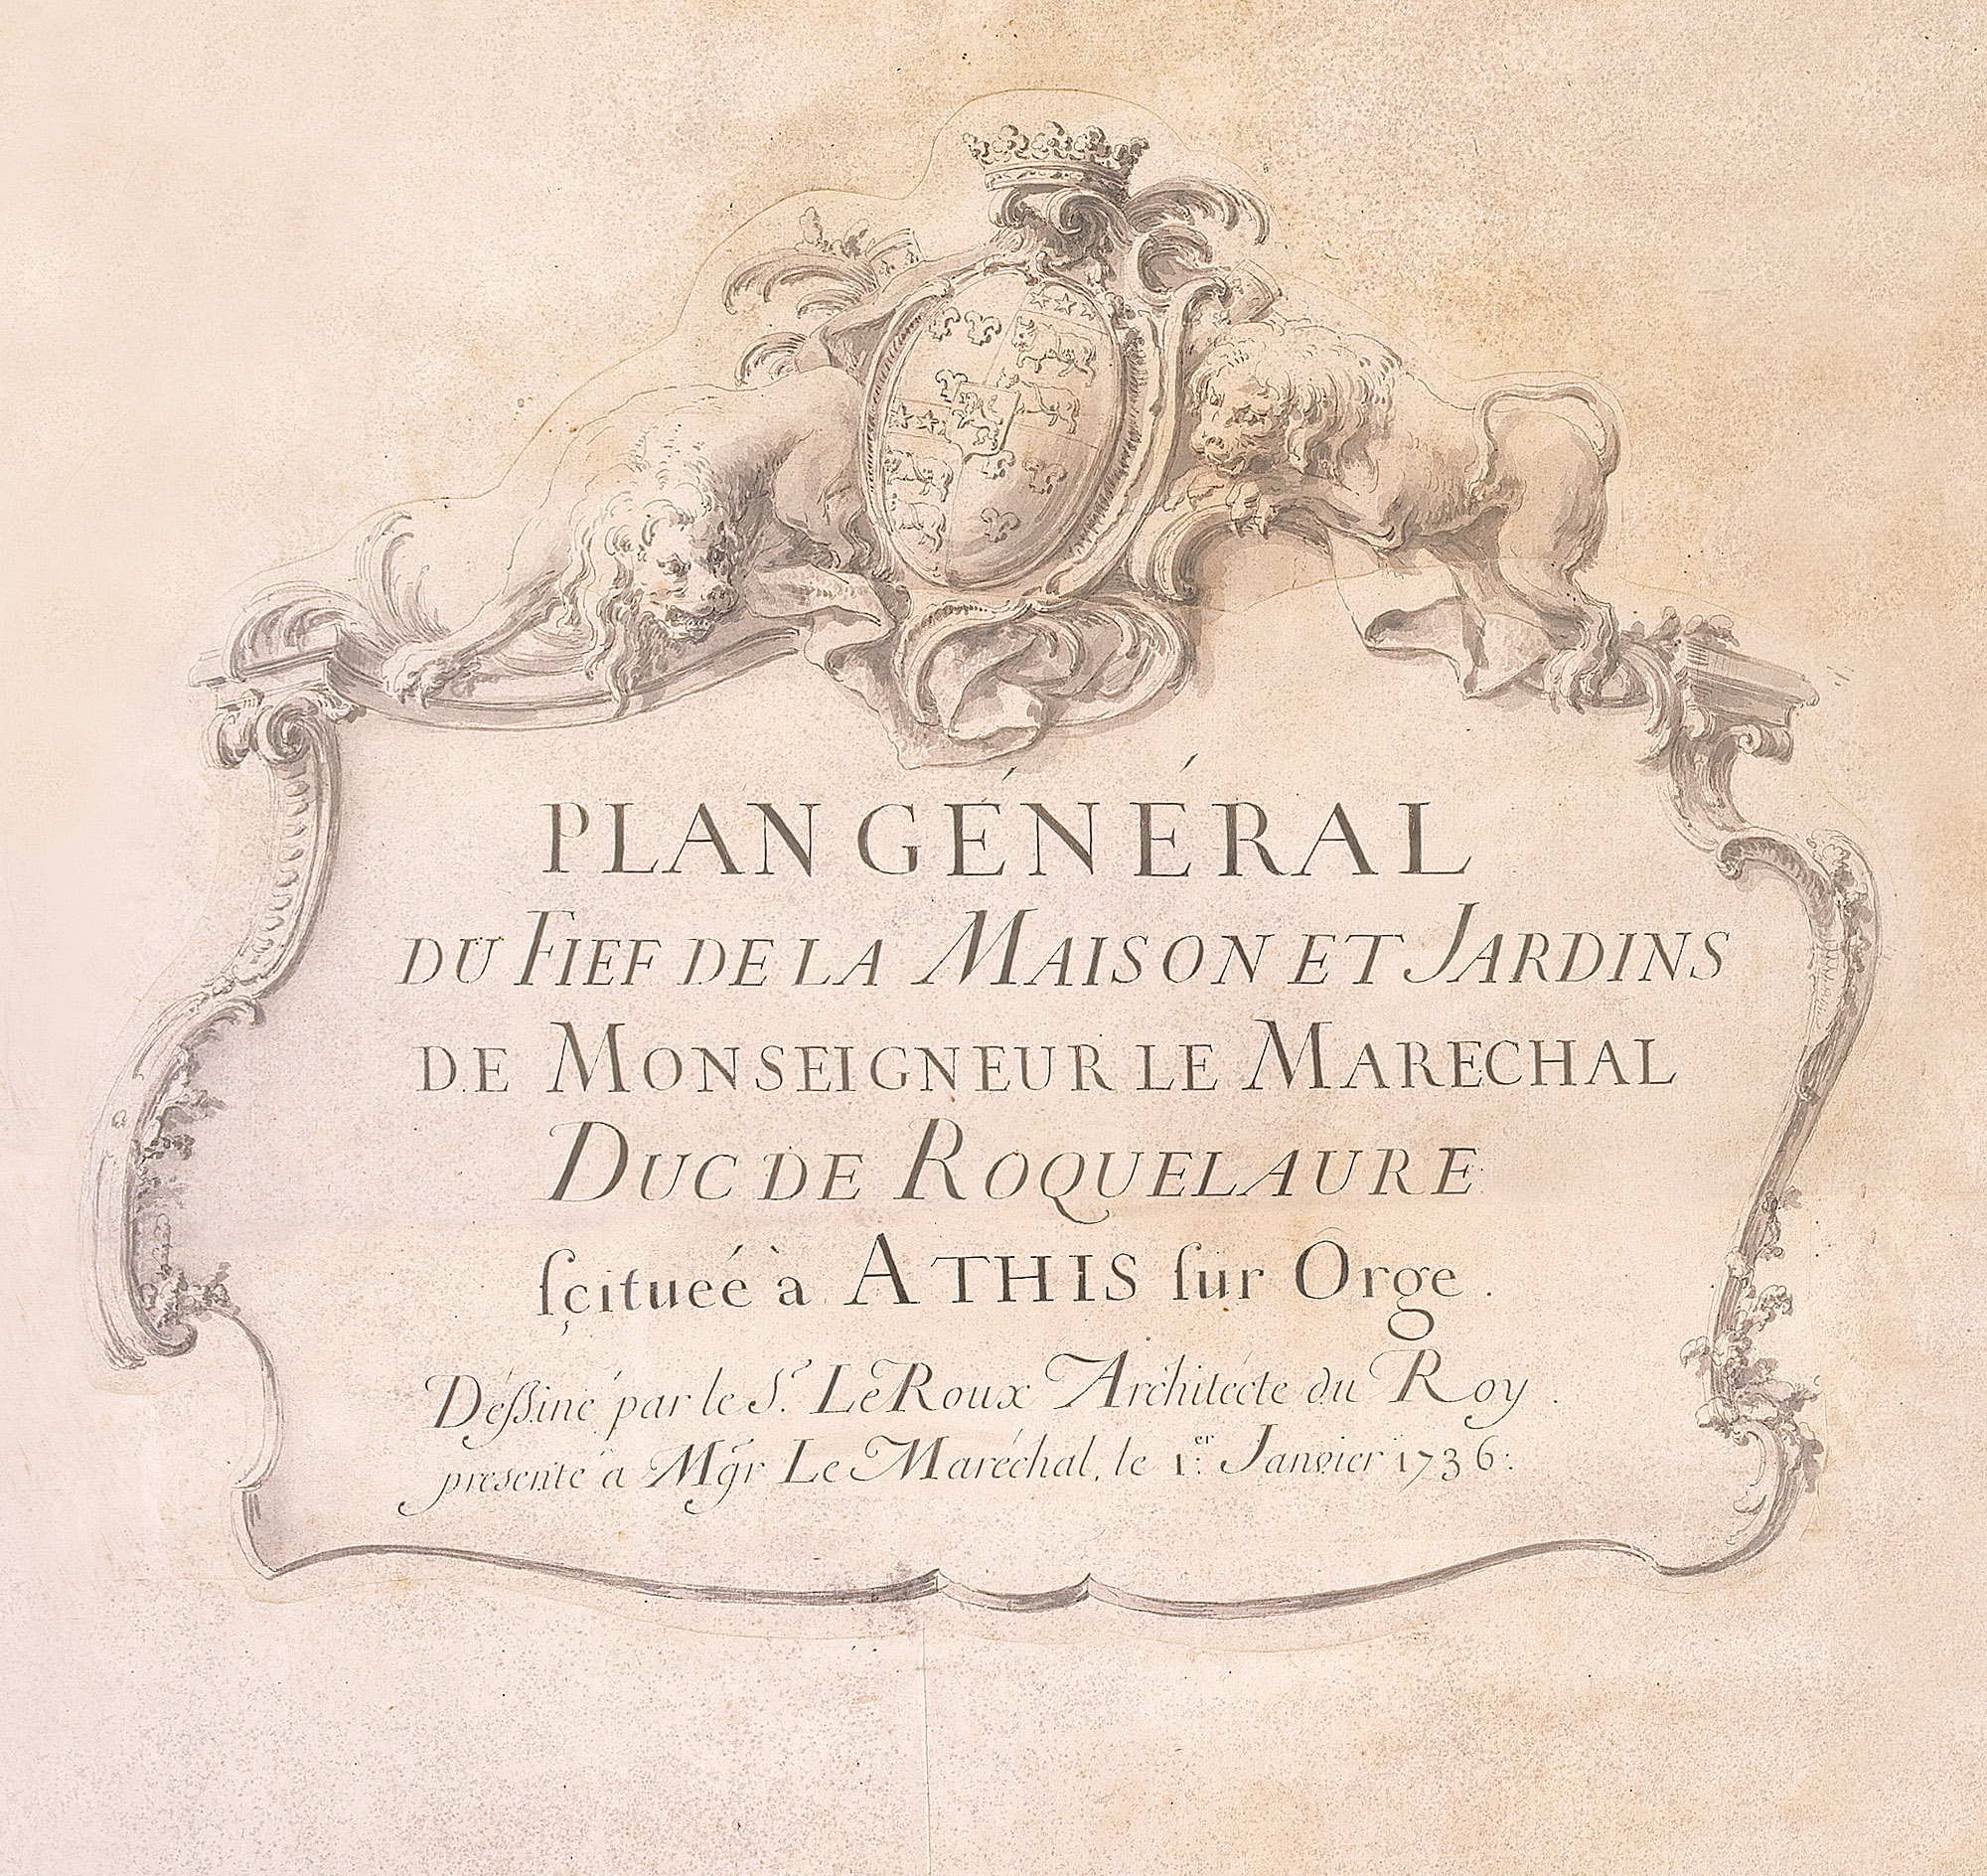 PLAN GÉNÉRAL
DU FIEF DE LA MAISON ET JARDINS
DE MONSEIGNEUR LE MARECHAL
DUC DE ROQUELAURE
ſçitueé à ATHIS ſur Orge.
Déßiné par le S.r Le Roux Architécte du Roy.
présenté à Mgr Le Maréchal, le 1.er Janvier 1736.